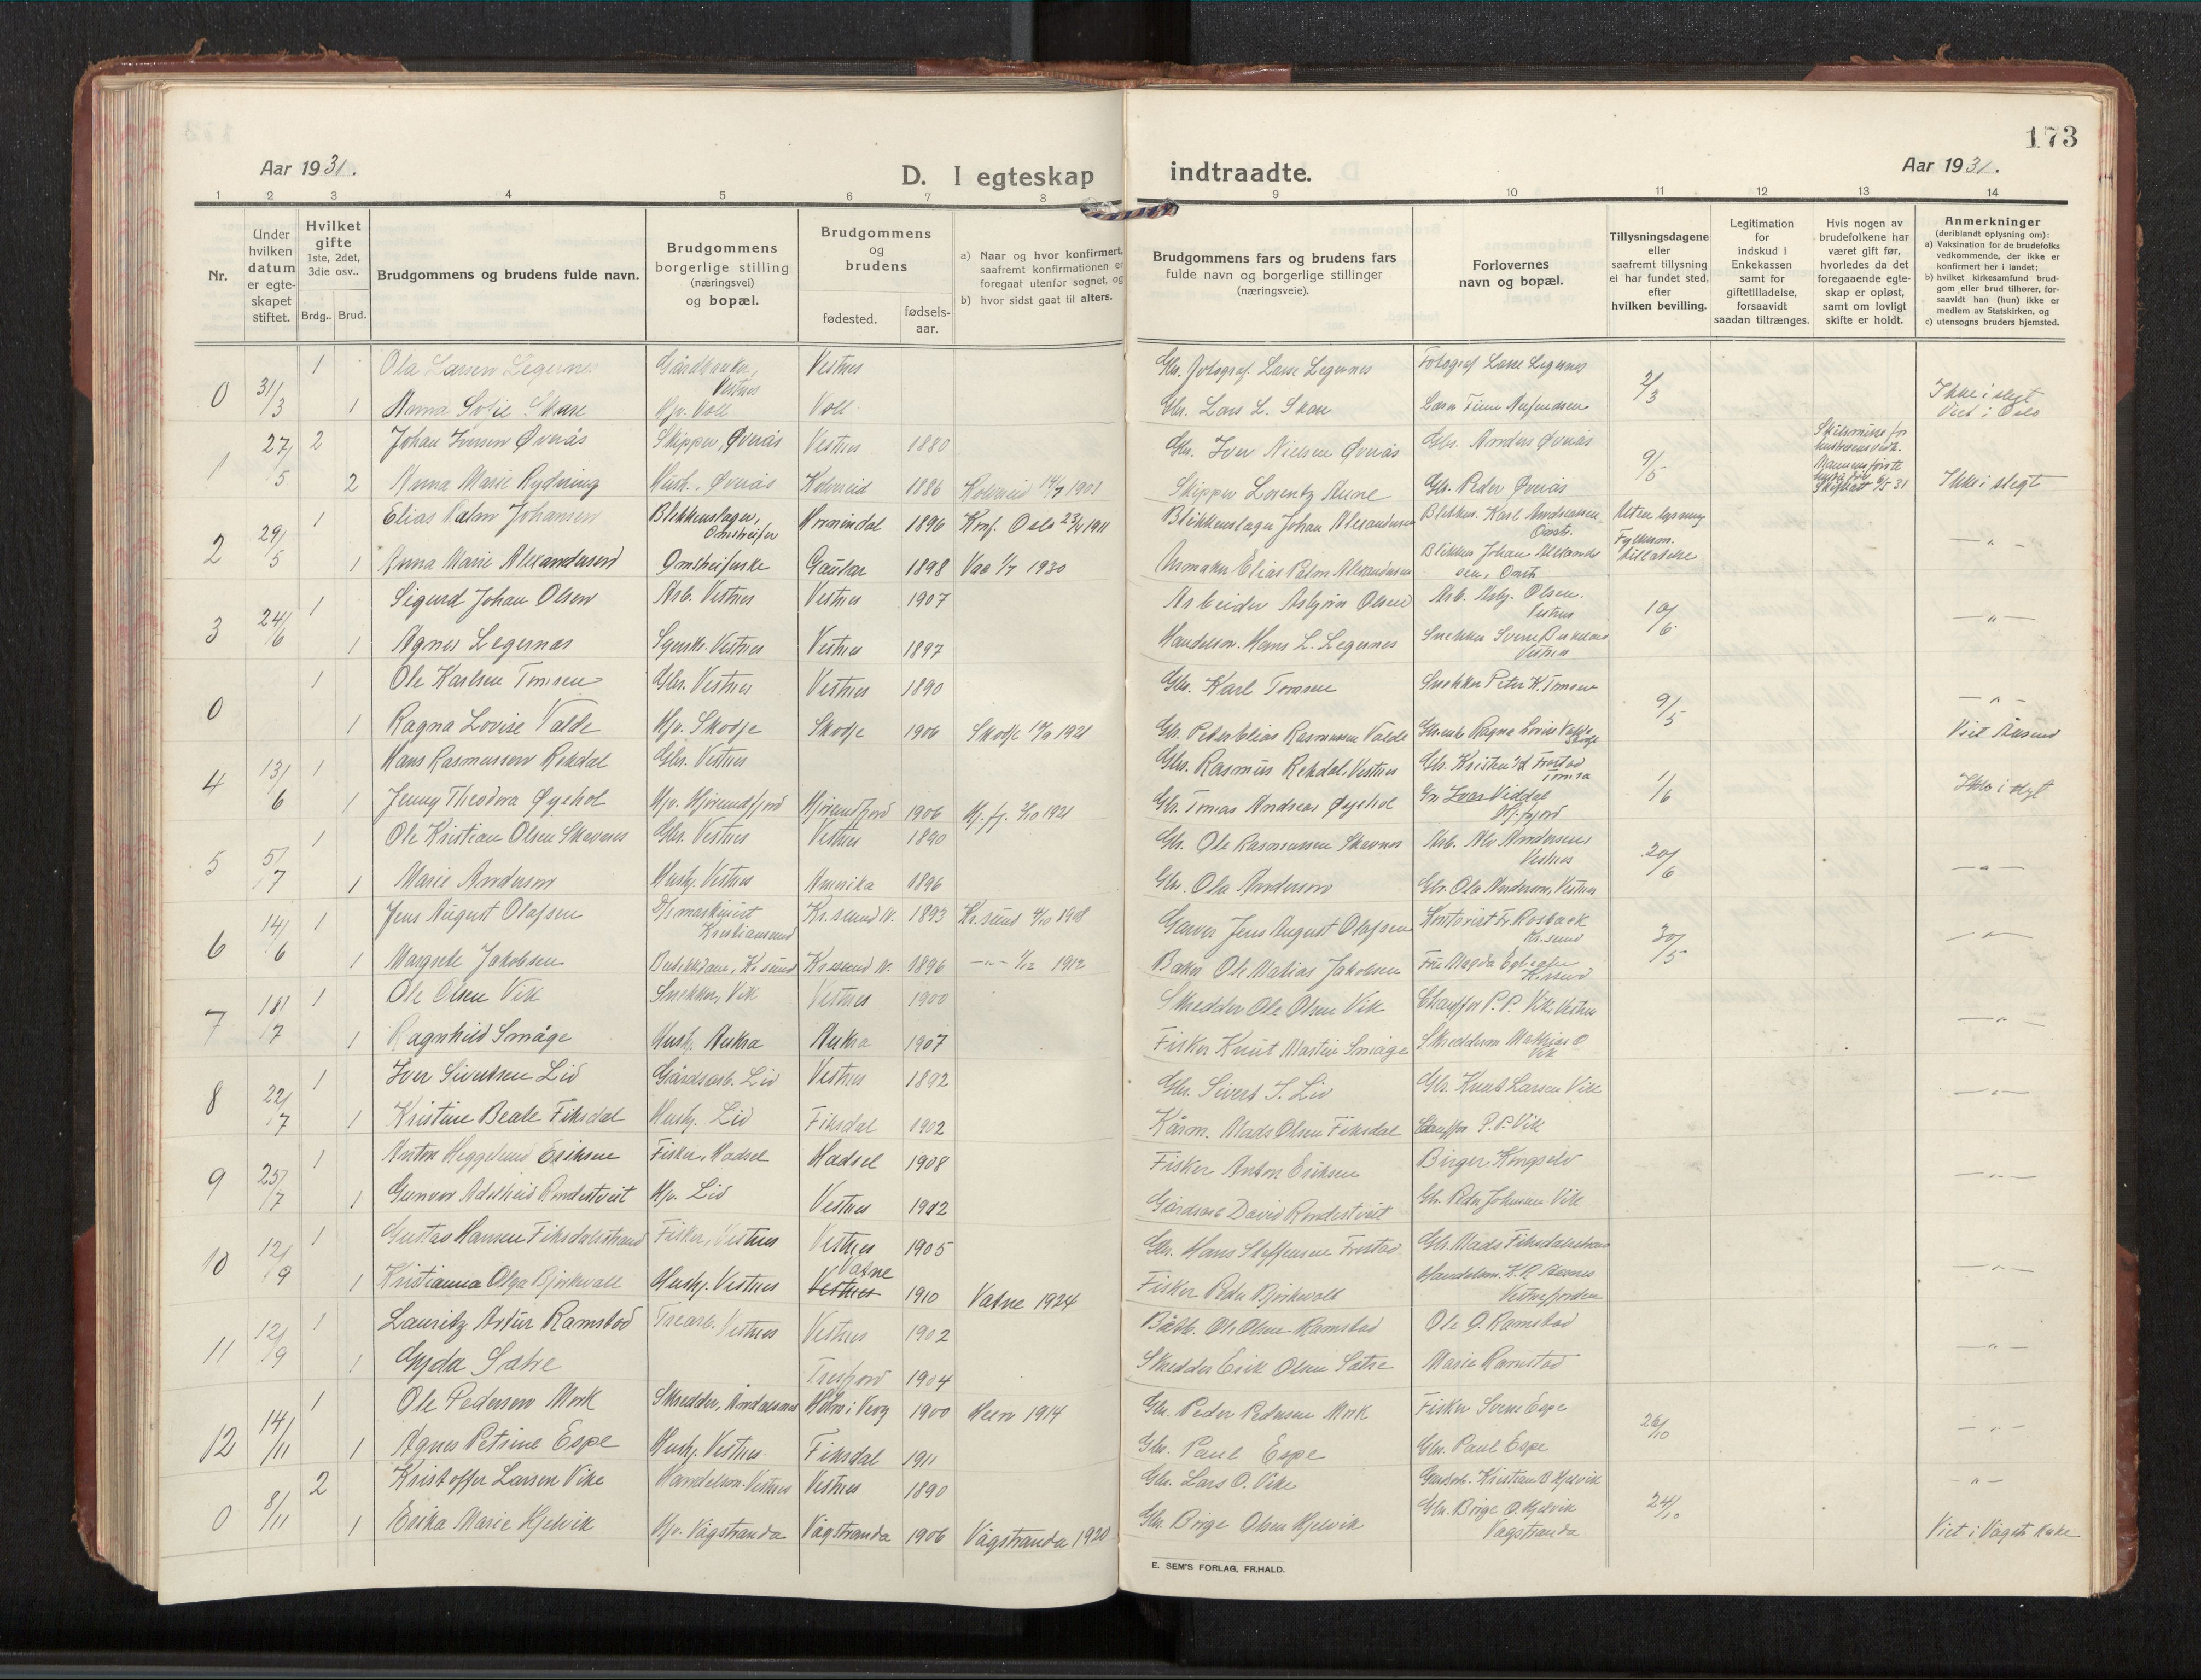 173
Aar 1931.
D. I egteskap indtraadte.
Aar 1931.
1 2 3 4 5 6 7 8 9 10 11 12 13 14
Nr.
Under hvilken datum er egteskapet stiftet.
Hvilket gifte 1ste, 2det, 3die osv..
Brdg.. Brud.
Brudgommens og brudens fulde navn.
Brudgommens borgerlige stilling (næringsvei) og bopæl.
Brudgommens og brudens
fødested.
fødsels-aar.
a) Naar og hvor konfirmert, saafremt konfirmationen er foregaat utenfor sognet, og
b) hvor sidst gaat til alters.
Brudgommens fars og brudens fars fulde navn og borgerlige stillinger (næringsveie).
Forlovernes navn og bopæl.
Tillysningsdagene eller saafremt tillysning ei har fundet sted, efter hvilken bevilling.
Legitimation for indskud i Enkekassen samt for giftetilladelse, forsaavidt saadan tiltrænges.
Hvis nogen av brudefolkene har været gift før, hvorledes da det foregaaende egteskap er opløst, samt om lovligt skifte er holdt.
Anmerkninger
(deriblandt oplysning om):
a) Vaksination for de brudefolks vedkommende, der ikke er konfirmert her i landet;
b) hvilket kirkesamfund brudgom eller brud tilhører, forsaavidt han (hun) ikke er medlem av Statskirken, og
c) utensogns bruders hjemsted.
0 31/3 1 Ola Larsen Legernes Gårdbruker, Vestnes Vestnes Gbr. Fotograf Lasse Legernes Fotograf Lasse Legernes 2/3
1 Anna Sofie Skare Hjv. Voll Voll Gbr. Lars L. Skare Ikke i slegt Viet i Oslo
1 27/5 2 Johan Iversen Øverås Skipper, Øverås Vestnes 1880 Gbr. Iver Nielsen Øverås Gbr. Anders Øverås 9/5
2 Anna Marie Rydning Hush. Øverås 1886 1901 Skipper Lorentz Aune Gbr. Peder Øverås Ikke i slegt
2 29/5 1 Elias Palm Johansen Blikkenslager, Omstreifer Hornindal 1896 Konf. Oslo 23/4 1911 Blikkenslager Johan Alexandersen Blikkens. Karl Andreassen Omstr. Uten lysning
1 Anna Marie Alexandersen Omstreiferske Gaular 1898 1/7 1930 Urmaker Elias Palm Alexandersen Blikken Johan Alexandersen, Omstr. Fylkesm. tillatelse — " —
3 24/6 1 Sigurd Johan Olsen Arb. Vestnes Vestnes 1907 Arbeider Asbjørn Olsen Arb. Asbj. Olsen. Vestnes 10/6
1 Agnes Legernes Vestnes Vestnes 1897 Handelsm. Hans L. Legernes Snekker Vestnes — " —
0 1 Ole Karlsen Tomren Gbr. Vestnes Vestnes 1890 Gbr. Karl Tomren Snekker Peter K. Tomren 9/5 — " —
1 Ragna Lovise Valde Hjv. Skodje Skodje 1906 Skodje 1921 Gbr. Peter Elias Rasmussen Valde Ragna Lovise Valde Skodje Viet Ålesund
4 13/6 1 Hans Rasmussen Rekdal Gbr. Vestnes Gbr. Rasmus Rekdal, Vestnes Gbr. Tomra 1/6 Ikke i slegt
1 Jenny Theodora Øyehol Hjv. Hjørundfjord Hjørundfjord 1906 Hj.fj. 2/10 1921 Gbr. Tomas Andreas Øyehol Gbr. Ivar Viddal Hj.fjord
5 5/7 1 Ole Kristian Olsen Skavnes Gbr. Vestnes Vestnes 1890 Gbr. Ole Rasmussen Skavnes Arb. Andersen Vestnes 20/6
1 Marie Anderson Hush. Vestnes Amerika 1896 Gbr. Ola Anderson Gbr. Ola Anderson, Vestnes — " —
6 14/6 1 Jens August Olafsen D/s maskinist Kristiansund Kr.sund N. 1893 Kr.sund 4/10 1908 Garver Jens August Olafsen Kontorist Fr. Rosbach Kr.sund 30/5 — " —
1 Margrete Jakobsen Butikkdame, Kr.sund Kr.sund N. 1896 — " — 1/12 1912 Baker Ole Matias Jakobsen Frk. Magda Kr.sund
7 18/7 1 Ole Olsen Vik Snekker, Vik Vestnes 1900 Skredder Ole Olsen Vik Chauffør P. P. Vik, Vestnes
1 Ragnhild Småge Hush. Aukra Aukra 1907 Fisker Knut Martin Småge Skredderm Mathias O Vik — " —
8 22/7 1 Iver Sivertsen Lid Gårdsarb. Lid Vestnes 1892 Gbr. Sivert S. Lid Gbr. Knut Larsen Vik — " —
1 Kristine Beate Fiksdal Hush. Lid Fiksdal 1902 Kårm. Mads Olsen Fiksdal Chauffør P. P. Vik
9 25/7 1 Anton Heggelund Eriksen Fisker, Hadsel Hadsel 1908 Fisker Anton Eriksen Birger — " —
1 Gunvor Adelheid Rondestveit Hjv. Lid Vestnes 1912 Gårdsarb. David Rondestveit Gbr. Peder Johnsen Vik
10 12/9 1 Gustav Hansen Fiksdalstrand Fisker, Vestnes Vestnes 1905 Gbr. Hans Steffensen Frostad Gbr. Mads Fiksdalstrand
1 Kristianna Olga Bjørkevoll Hush. Vestnes Vestnes Vatne 1910 Vatne 1924 Fisker Peder Bjørkevoll Handelsm. K. R. — " —
11 12/9 1 Lauritz Artur Ramstad Trearb. Vestnes Vestnes 1902 Båtb. Ole Olsen Ramstad Ole O. Ramstad
1 Gyda Sætre Tresfjord 1904 Skredder Erik Olsen Sætre Marie Ramstad — " —
12 14/11 1 Ole Pedersen Mork Skredder, Åndalsnes Holm i Veøy 1900 Heen 1914 Gbr. Peder Pedersen Mork Fisker Svein Espe 26/10
1 Agnes Petrine Espe Hush. Vestnes Fiksdal 1911 Gbr. Paul Espe Gbr. Paul Espe — " —
0 8/11 2 Kristoffer Larsen Vike Handelsm. Vestnes Vestnes 1890 Gbr. Lars O. Vike Kristian B Hjelvik 24/10 — " —
1 Erika Marie Hjelvik Hjv. Vågstranda Vågstranda 1906 Vågstranda 1920 Gbr. Birge Olsen Hjelvik Gbr. Birge O. Hjelvik Vågstranda Viet i Vågstr. kirke
E. SEM'S FORLAG, FR.HALD.